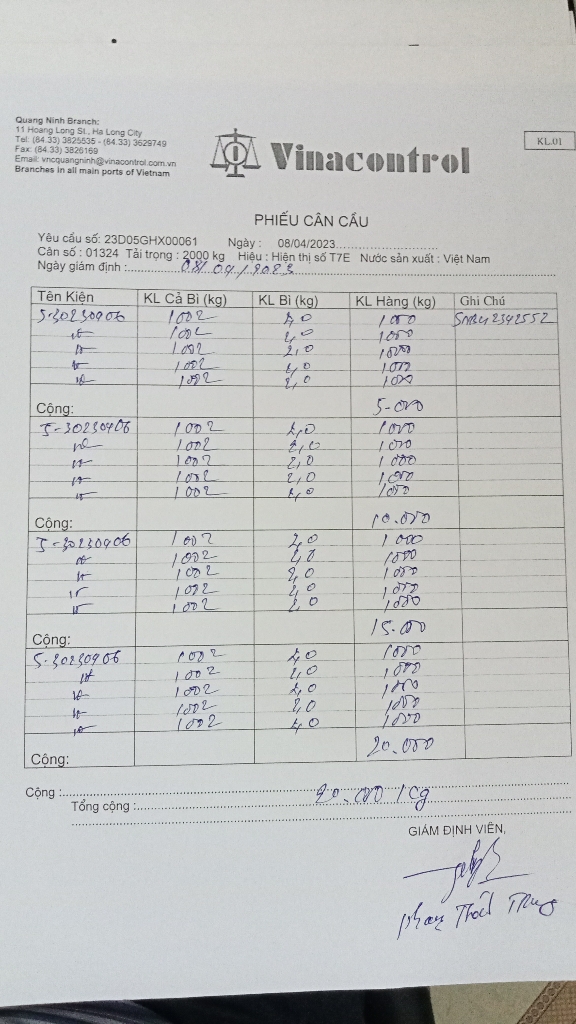 Quang Ninh Branch:
11 Hoang Long St., Ha Long City
Tel: (84.33) 3825535 - (84.33) 3629749
Fax: (84.33) 3826169
Email: vncquangninh@vinacontrol.com.vn
Branches in all main ports of Vietnam
Vinacontrol
KL.01
PHIẾU CÂN CẨU
Yêu cầu số: 23D05GHX00061 Ngày : 08/04/2023
Cân số : 01324 Tải trọng : 2000 kg Hiệu : Hiện thị số T7E Nước sản xuất : Việt Nam
Ngày giám định : 08/04/2023
Tên Kiện KL Cả Bì (kg) KL Bì (kg) KL Hàng (kg) Ghi Chú
5-30230406 1002 2,0 1000 SNBU2342552
1002 2,0 1000
1002 2,0 1000
1002 2,0 1000
1002 2,0 1000
Cộng: 5.000
5-30230406 1002 2,0 1000
1002 2,0 1000
1002 2,0 1000
1002 2,0 1000
1002 2,0 1000
Cộng: 10.000
5-30230406 1002 2,0 1000
1002 2,0 1000
1002 2,0 1000
1002 2,0 1000
1002 2,0 1000
Cộng: 15.000
5-30230406 1002 2,0 1000
1002 2,0 1000
1002 2,0 1000
1002 2,0 1000
1002 2,0 1000
Cộng: 20.000
Cộng : 20.000 kg
Tổng cộng :
GIÁM ĐỊNH VIÊN,
Phan Trung